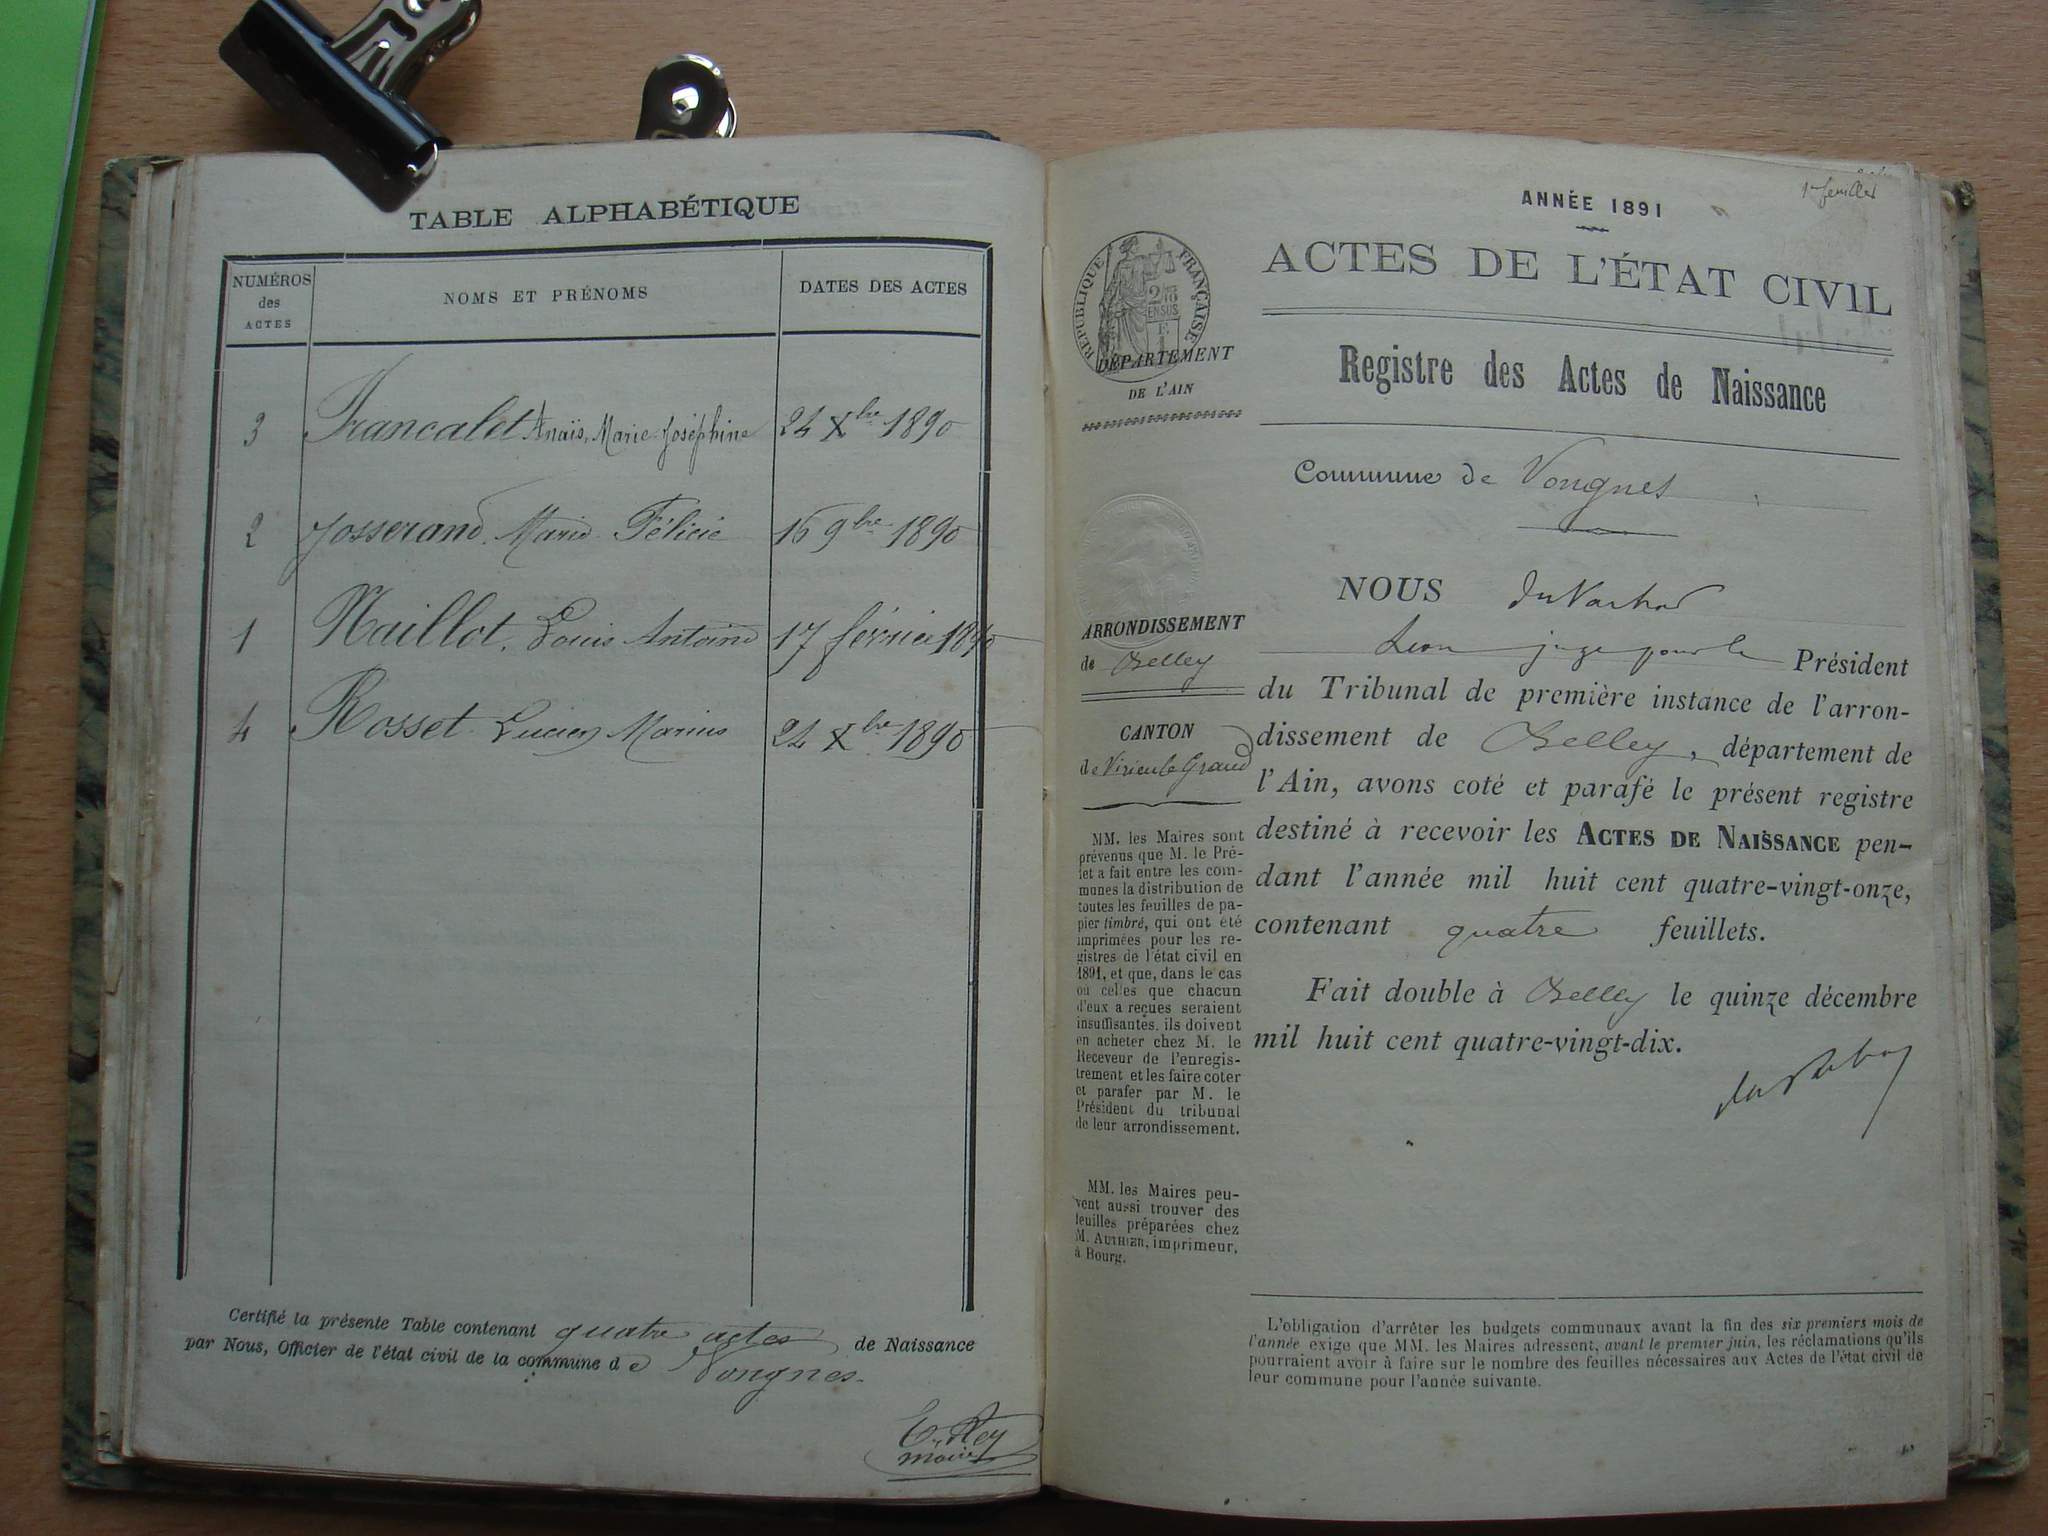 TABLE ALPHABÉTIQUE
NUMÉROS
des
ACTES
NOMS ET PRÉNOMS
DATES DES ACTES
3 Francalet Anaïs, Marie-Joséphine 24 Xbre 1890
2 Josserand Marie Félicie 16 9bre 1890
1 Maillot, Louis Antoine 17 février 1890
4 Rosset Lucien Marius 24 Xbre 1890
Certifié la présente Table contenant quatre actes de Naissance
par Nous, Officier de l'état civil de la commune de Vongnes.
E. Rey
maire
1er feuillet
ANNÉE 1891
ACTES DE L'ÉTAT CIVIL
Registre des Actes de Naissance
Commune de Vongnes
RÉPUBLIQUE FRANÇAISE
2/10
EN SUS
DÉPARTEMENT
DE L'AIN
ARRONDISSEMENT
de Belley
CANTON
de Virieu le Grand
MM. les Maires sont
prévenus que M. le Pré-
fet a fait entre les com-
munes la distribution de
toutes les feuilles de pa-
pier timbré, qui ont été
imprimées pour les re-
gistres de l'état civil en
1891, et que, dans le cas
où celles que chacun
d'eux a reçues seraient
insuffisantes, ils doivent
en acheter chez M. le
Receveur de l'enregis-
trement et les faire coter
et parafer par M. le
Président du tribunal
de leur arrondissement.
MM. les Maires peu-
vent aussi trouver des
feuilles préparées chez
M. AUTHIER, imprimeur,
à Bourg.
NOUS
Léon juge pour le Président
du Tribunal de première instance de l'arron-
dissement de Belley, département de
l'Ain, avons coté et parafé le présent registre
destiné à recevoir les ACTES DE NAISSANCE pen-
dant l'année mil huit cent quatre-vingt-onze,
contenant quatre feuillets.
Fait double à Belley le quinze décembre
mil huit cent quatre-vingt-dix.
L'obligation d'arrêter les budgets communaux avant la fin des six premiers mois de
l'année exige que MM. les Maires adressent, avant le premier juin, les réclamations qu'ils
pourraient avoir à faire sur le nombre des feuilles nécessaires aux Actes de l'état civil de
leur commune pour l'année suivante.